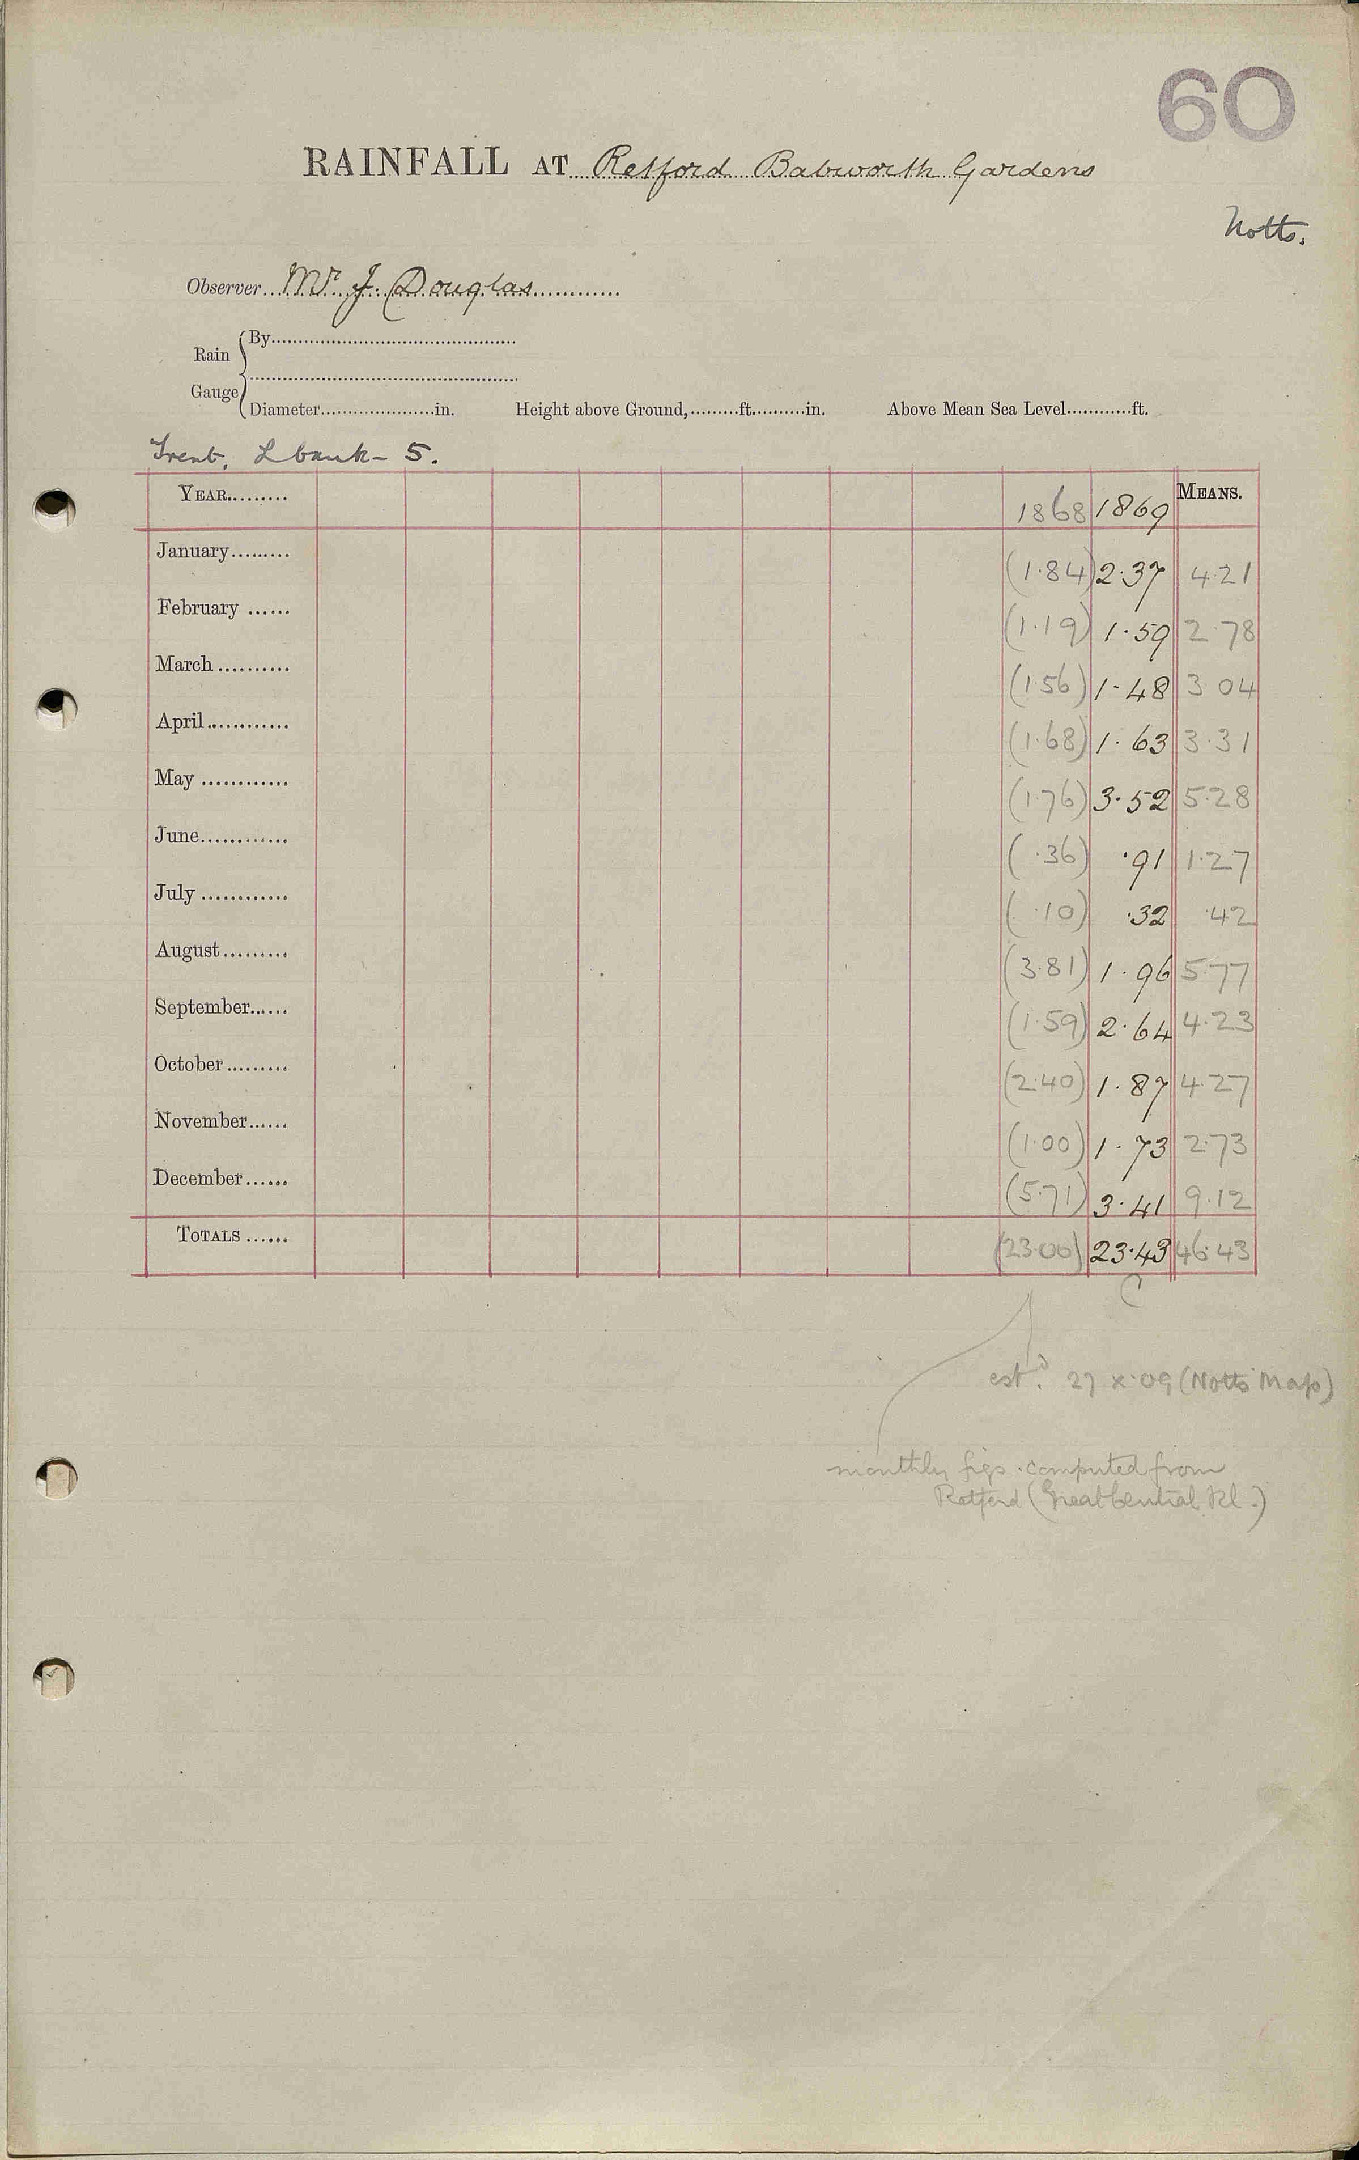 60
RAINFALL AT Retford Babworth Gardens
Notts.
Observer Mr J. Douglas
Rain Gauge
By
Diameter in. Height above Ground, ft. in. Above Mean Sea Level ft.
Trent, L bank - 5.
YEAR 1868 1869 MEANS.
January (1.84) 2.37 4.21
February (1.19) 1.59 2.78
March (1.56) 1.48 3.04
April (1.68) 1.63 3.31
May (1.76) 3.52 5.28
June (.36) .91 1.27
July (.10) .32 .42
August (3.81) 1.96 5.77
September (1.59) 2.64 4.23
October (2.40) 1.87 4.27
November (1.00) 1.73 2.73
December (5.71) 3.41 9.12
TOTALS (23.00) 23.43 46.43
C
estd. 27 x.09 (Notts Map)
monthly figs. computed from
Retford (Great Central Rl.)